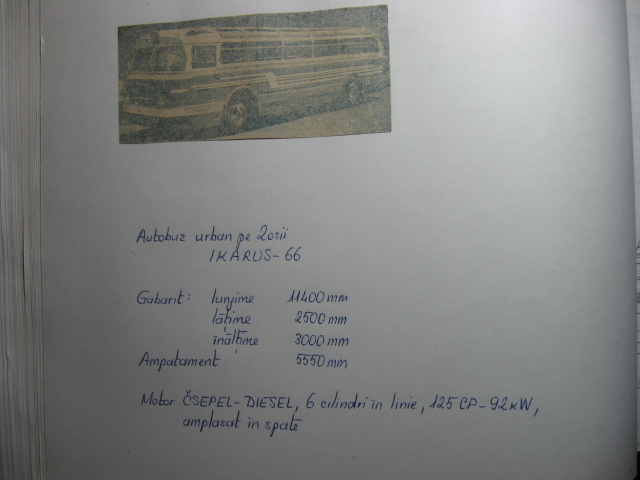 Autobuz urban pe 2osii
IKARUS-66
Gabarit: lungime 11400mm
lățime 2500mm
înălțime 3000mm
Ampatament 5550mm
Motor ČSEPEL-DIESEL, 6 cilindri în linie, 125 CP-92kW,
amplasat în spate